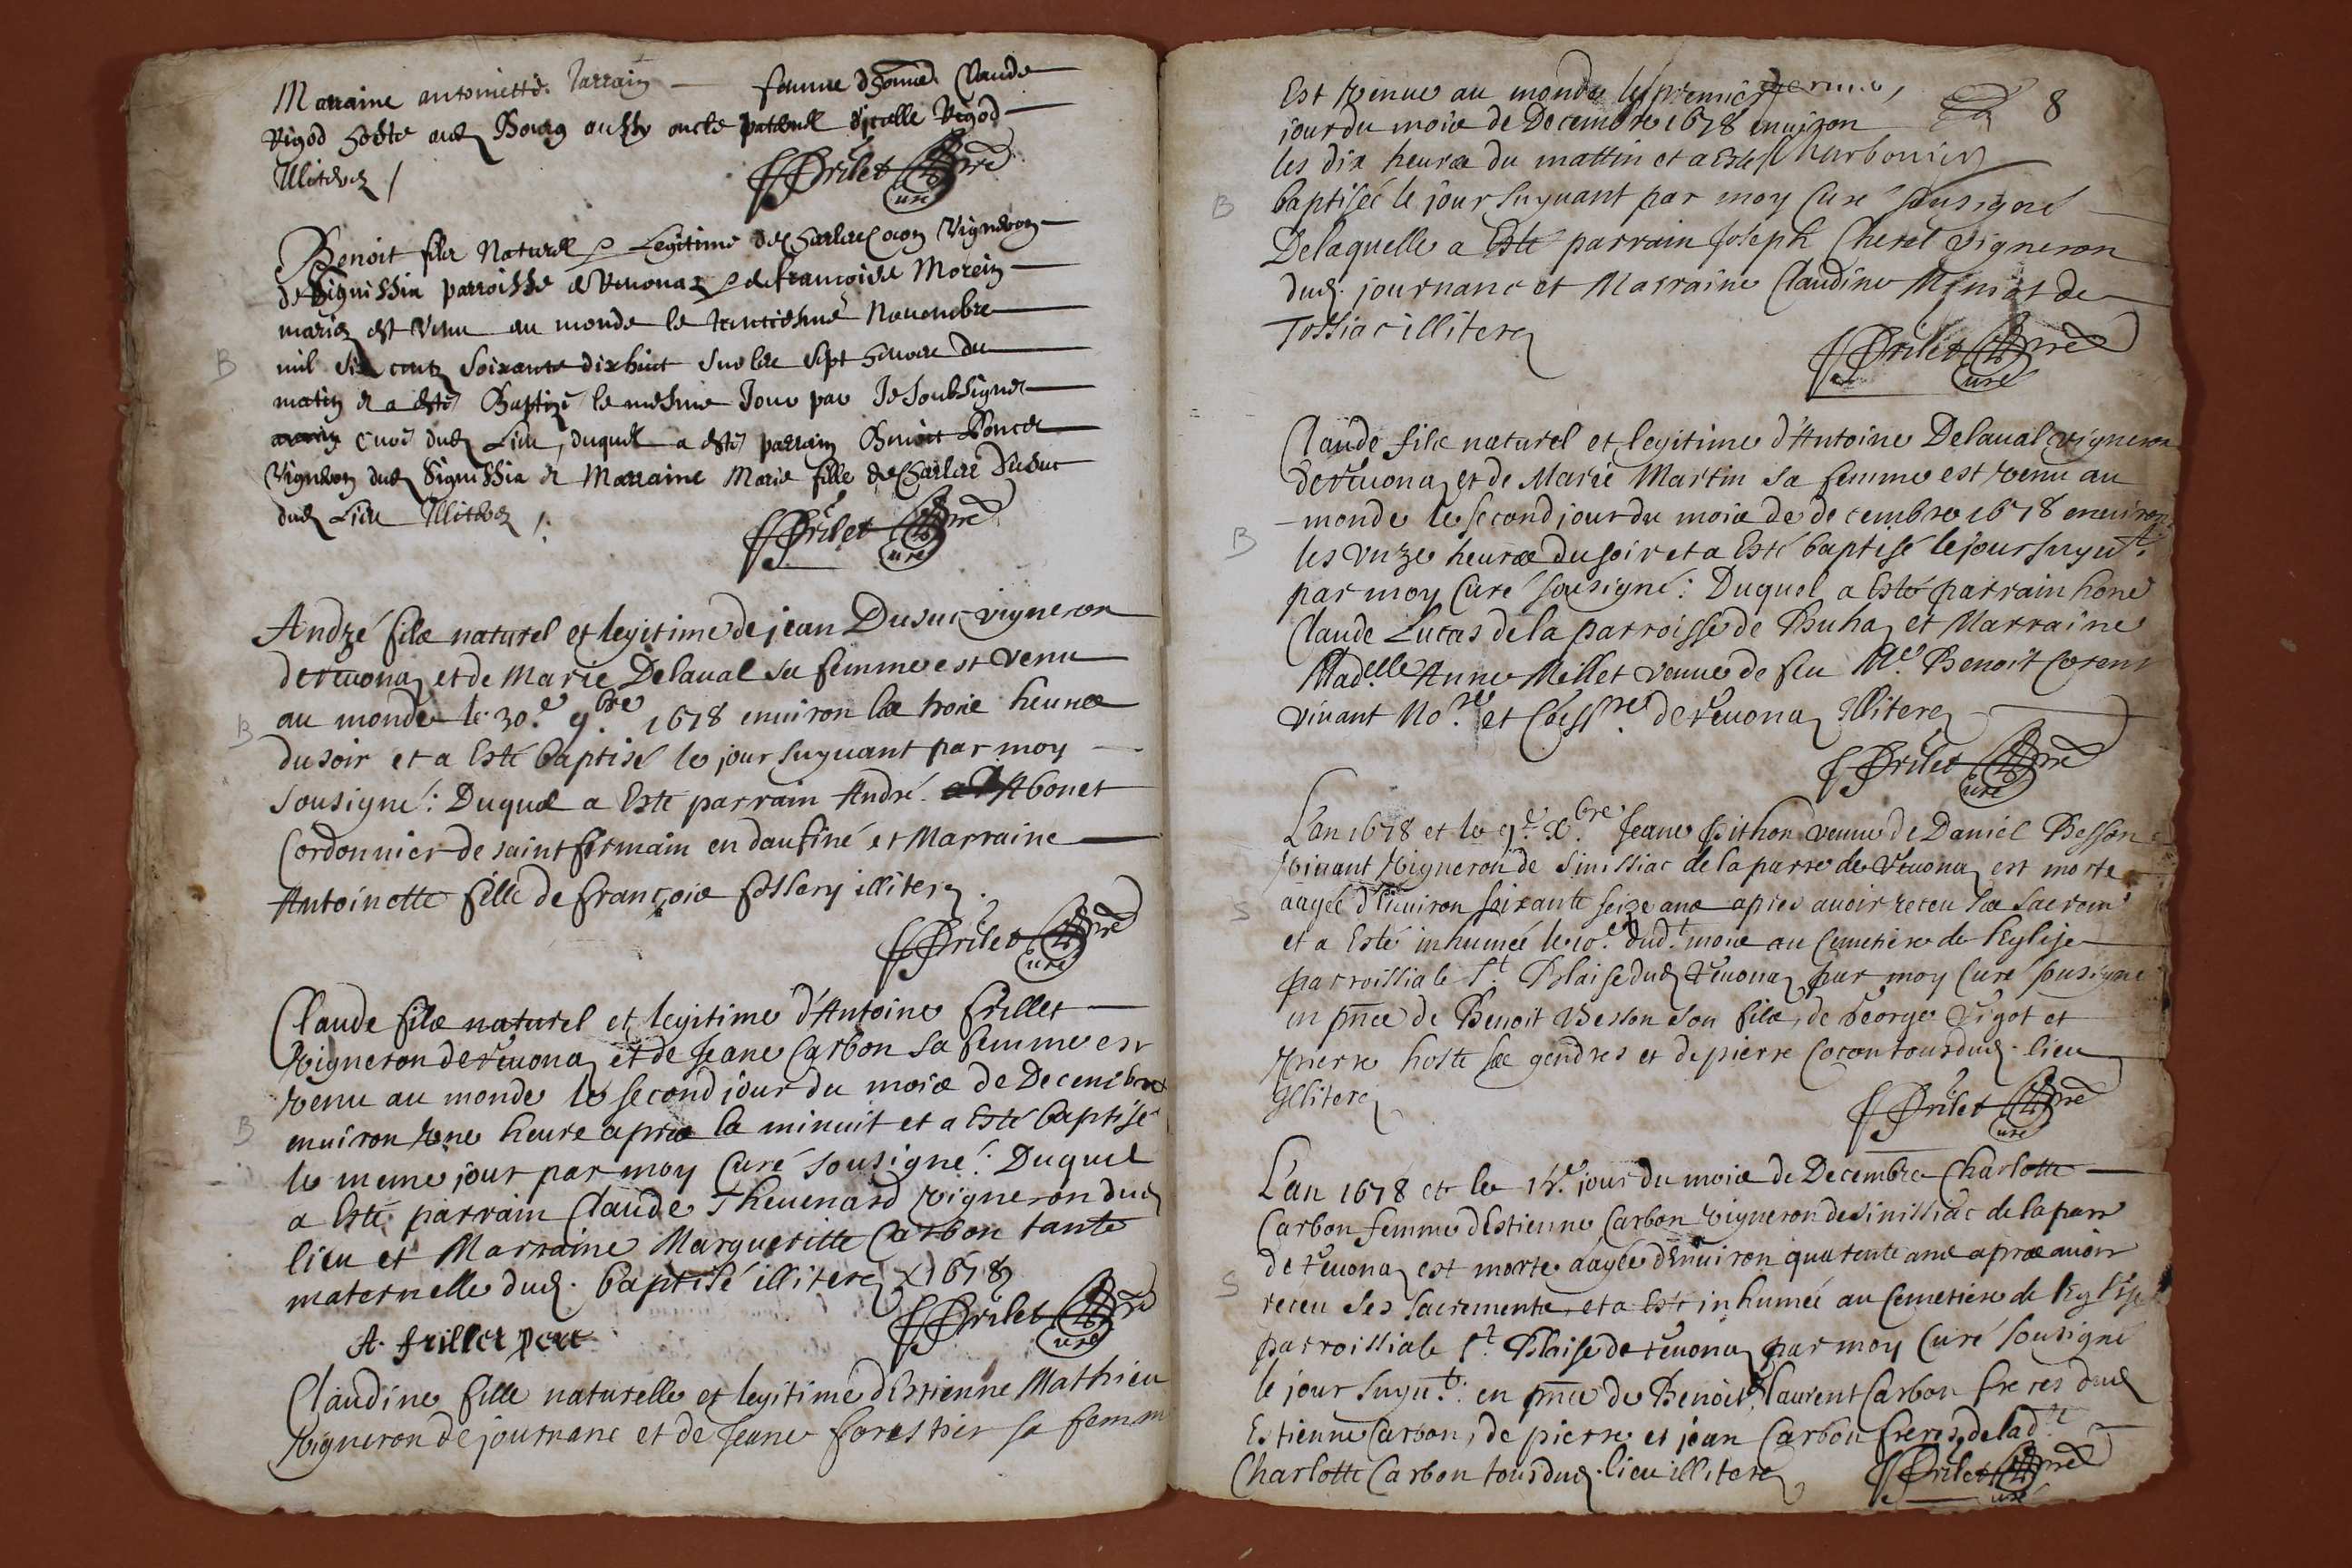 Marraine antoinette Tarrain — femme d'honé Claude
Vigod hoste aud Bourg aussy oncle paternel d'jcelle Vigod
Illiterez /
Brilet Pbre
Curé
Benoit fils Naturel & Legitime de Charles Cocon Vigneron
de Signissia parroisse de Reuonaz & de francoise Morein
mariez est venu au monde le trentiesme Nouembre
mil six centz soixante dixhuict sur les sept heures du
matin et a esté Baptizé le mesme Jour par Je soubsigné
curé dud Lieu, duquel a esté parrain Benoit Ponces
Vigneron dud Signissia et Marraine Marie fille de Charles Dusuc
dud Lieu Illiterez /.
Brilet Pbre
Curé
André fils naturel et legitime de jean Dusuc vigneron
de reuonaz et de Marie Delaual sa femme est venu
au monde le 30.e 9.bre 1678 enuiron les trois heures
du soir et a Esté baptisé le jour suyuant par moy
sousigné: Duquel a Este parrain André Abonet
Cordonnier de saint firmain en daufiné et Marraine
Antoinette fille de françois fossery illiterez.
Brilet Pbre
Curé
Claude fils naturel et legitime d'Antoine frillet
vigneron de reuonaz et de Jeane Carbon sa femme est
venu au monde le second jour du mois de Decembre
enuiron vne heure apres la minuit et a Esté baptisé
le meme jour par moy Curé sousigné: Duquel
a Esté parrain Claude Theuenard vigneron dud
lieu et Marraine Margueritte Carbon tante
maternelle dud. baptisé illiterez X 1678
A. frillet pere
Brilet Pbre
Curé
Claudine fille naturelle et legitime d'Estienne Mathieu
vigneron de journanc et de Jeane forestier sa femme
8
Est venue au monde le premier
jour du mois de Decembre 1678 enuiron
les dix heures du mattin et a Esté
baptiseé le jour suyuant par moy Curé sousigné
De laquelle a Esté parrain Joseph Cheret vigneron
dud. journanc et Marraine Claudine Miniat de
Tossiac illiterez
Brilet Pbre
Curé
Claude fils naturel et legitime d'Antoine Delaual vigneron
de reuonaz et de Marie Martin sa femme est venu au
monde le second jour du mois de decembre 1678 enuiron
les vnze heures du soir et a Esté baptisé le jour suyu.t
par moy Curé sousigné: Duquel a Esté parrain honé
Claude Lucas de la parroisse de Buhaz et Marraine
Mad.elle Anne Millet venue de feu M.e Benoit Corent
viuant No.re et Chess.re de reuonaz Illiterez
Brilet Pbre
Curé
L'an 1678 et le 9.e X.bre Jeane Pithon veuue de Daniel Besson
viuant vigneron de Sinissiac de la parre de Reuonaz est morte
aageé d'Enuiron soixante seize ans apres auoir receu les Sacrem.s
et a Esté inhumeé le 10.e dud.t mois au Cemetiere de l'Eglise
parroissiale S.t Blaise dud Reuonaz par moy Curé sousigné
en pnce de Benoit Besson son fils, de George Vigot et
Pierre hoste ses gendres et de pierre Cocon tous dud. lieu
Illiterez
Brilet Pbre
Curé
L'an 1678 et le 14.e jour du mois de Decembre Charlotte
Carbon femme d'Estienne Carbon vigneron de Sinissiac de la parr
de reuonaz est morte aageé d'Enuiron quarente ans apres auoir
receu ses Sacrements, et a Esté inhumeé au Cemetiere de l'Eglise
parroissiale S.t Blaise de reuonaz par moy Curé sousigné
le jour suyu.t: en pnce de Benoit, laurent Carbon freres dud
Estienne Carbon, de pierre et jean Carbon freres de lad.te
Charlotte Carbon tous dud. lieu illiterez
Brilet Pbre
Curé